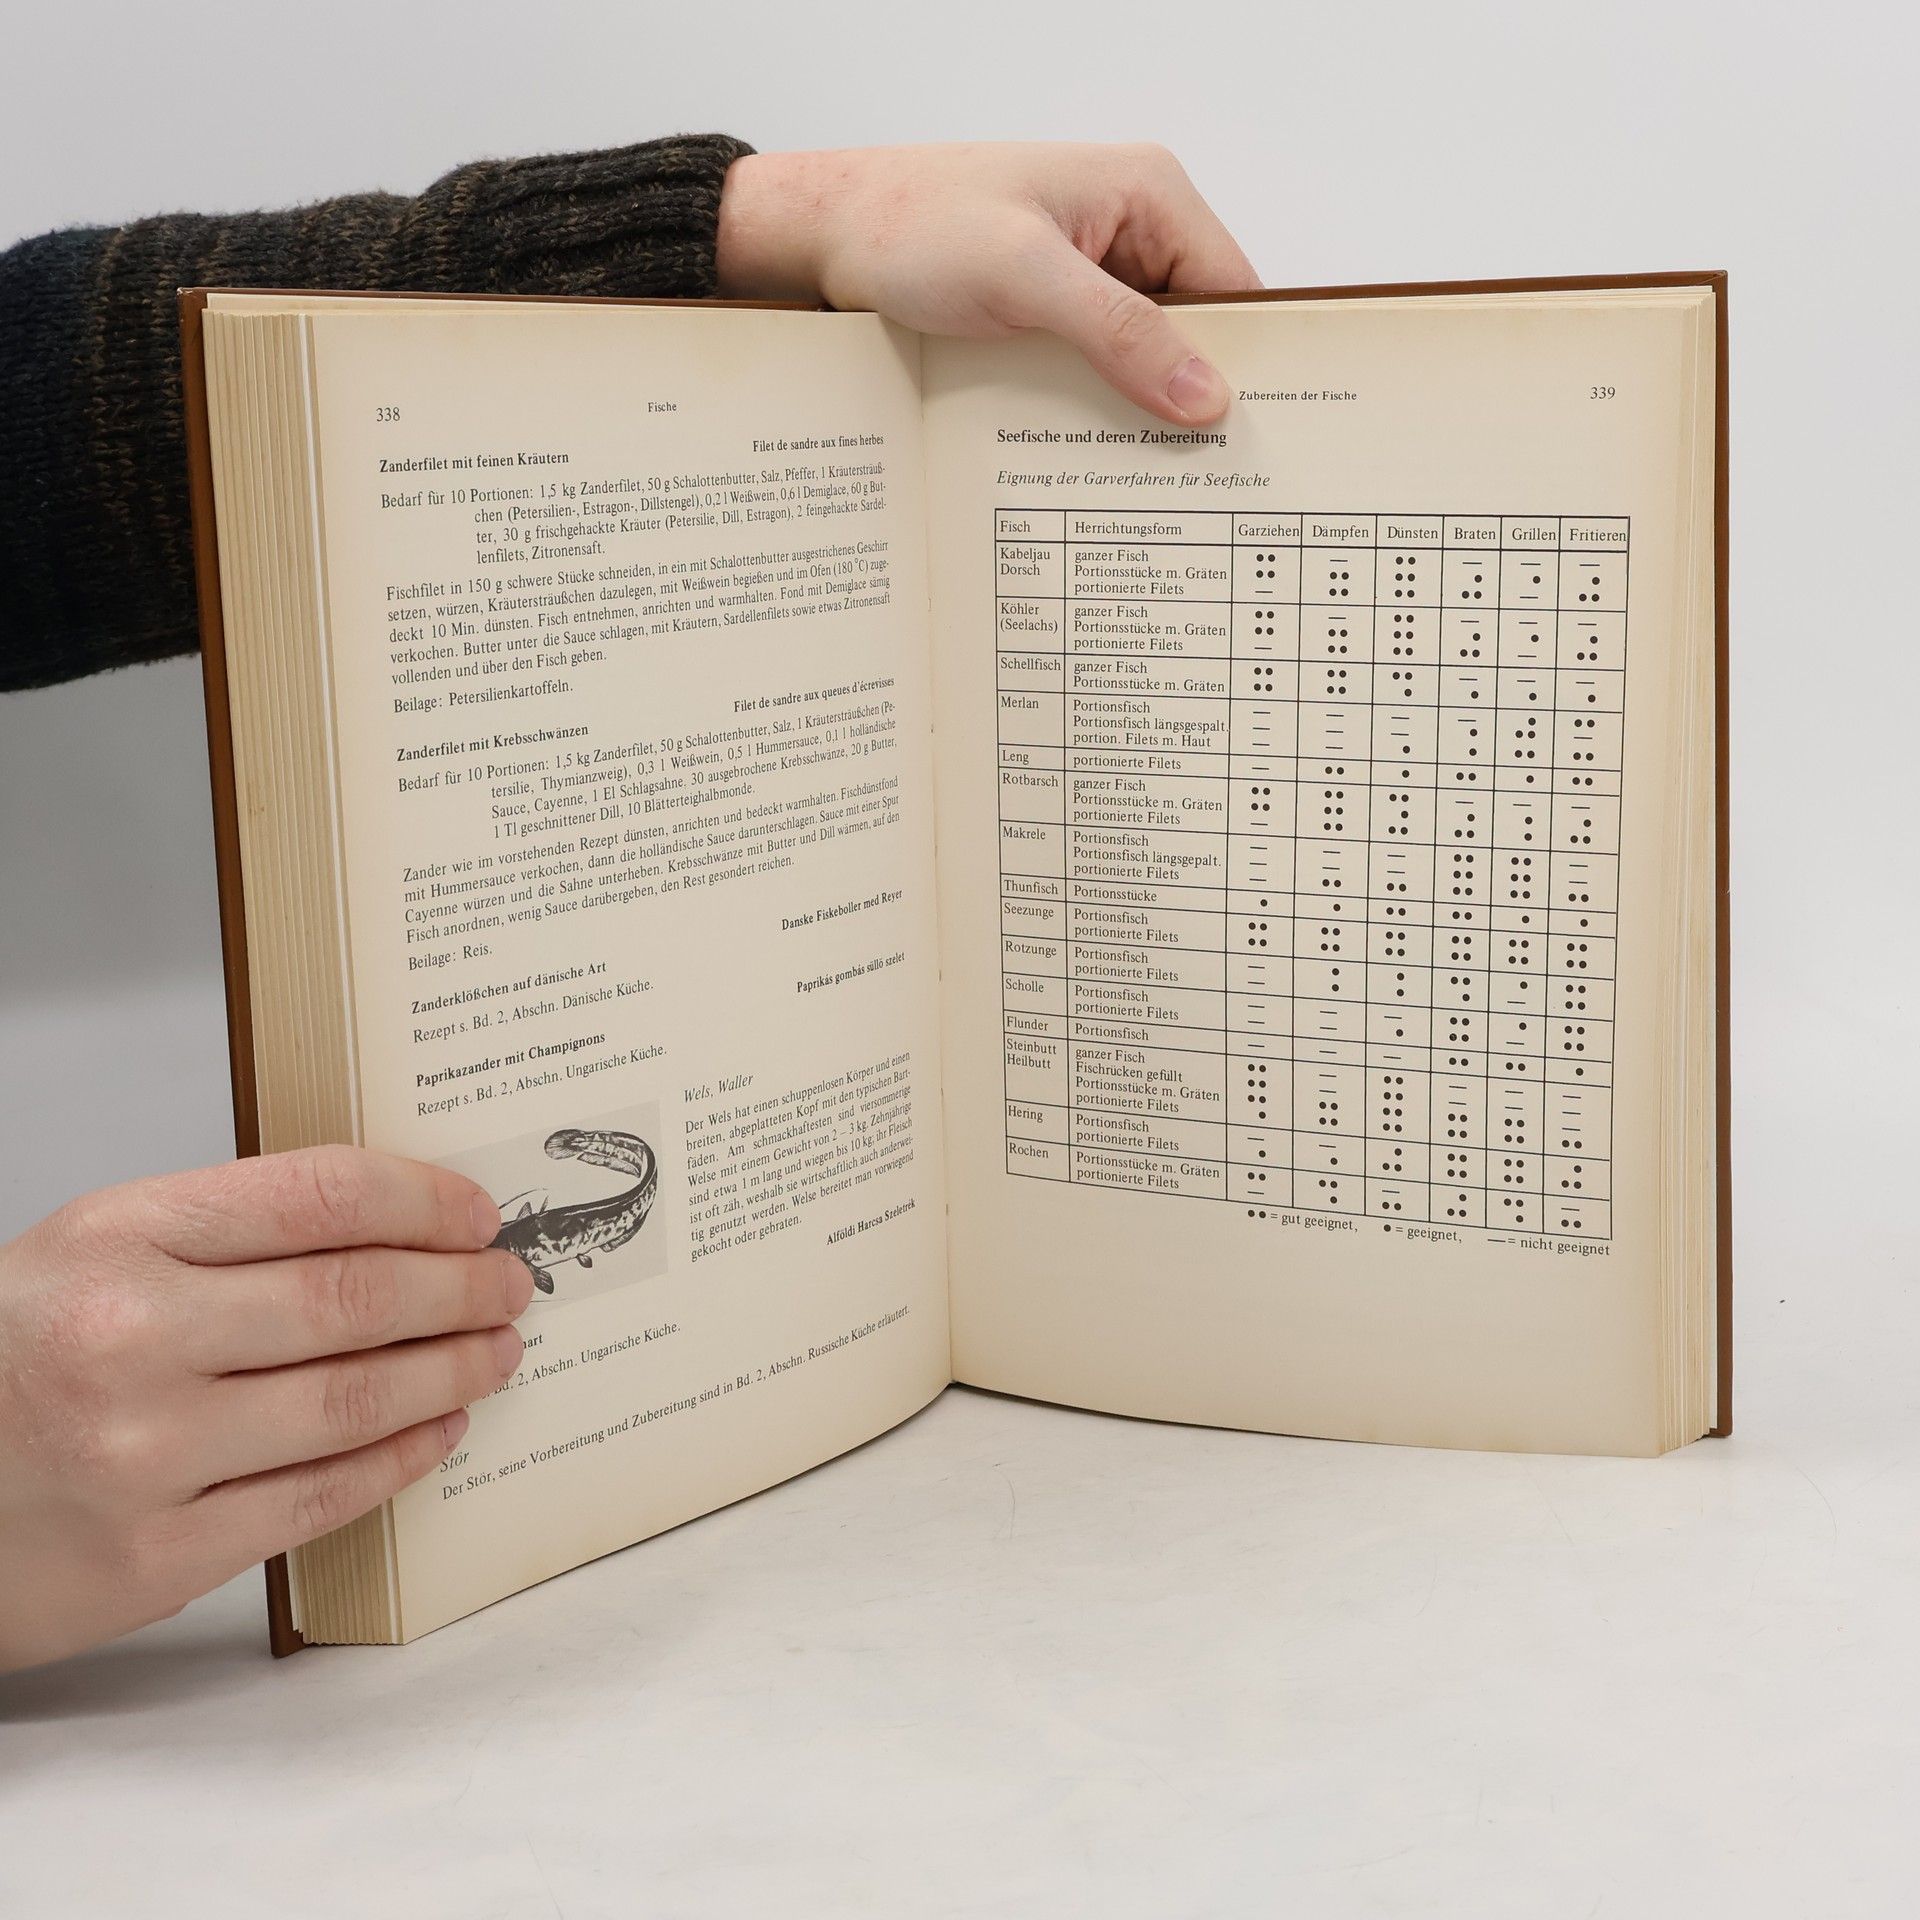 338
Fische
Zanderfilet mit feinen Kräutern
Filet de sandre aux fines herbes
Bedarf für 10 Portionen: 1,5 kg Zanderfilet, 50 g Schalottenbutter, Salz, Pfeffer, 1 Kräutersträuß-
chen (Petersilien-, Estragon-, Dillstengel), 0,2 l Weißwein, 0,6 l Demiglace, 60 g But-
ter, 30 g frischgehackte Kräuter (Petersilie, Dill, Estragon), 2 feingehackte Sardel-
lenfilets, Zitronensaft.
Fischfilet in 150 g schwere Stücke schneiden, in ein mit Schalottenbutter ausgestrichenes Geschirr
setzen, würzen, Kräutersträußchen dazulegen, mit Weißwein begießen und im Ofen (180 °C) zuge-
deckt 10 Min. dünsten. Fisch entnehmen, anrichten und warmhalten. Fond mit Demiglace sämig
verkochen. Butter unter die Sauce schlagen, mit Kräutern, Sardellenfilets sowie etwas Zitronensaft
vollenden und über den Fisch geben.
Beilage: Petersilienkartoffeln.
Zanderfilet mit Krebsschwänzen
Filet de sandre aux queues d'écrevisses
Bedarf für 10 Portionen: 1,5 kg Zanderfilet, 50 g Schalottenbutter, Salz, 1 Kräutersträußchen (Pe-
tersilie, Thymianzweig), 0,3 l Weißwein, 0,5 l Hummersauce, 0,1 l holländische
Sauce, Cayenne, 1 El Schlagsahne, 30 ausgebrochene Krebsschwänze, 20 g Butter,
1 Tl geschnittener Dill, 10 Blätterteighalbmonde.
Zander wie im vorstehenden Rezept dünsten, anrichten und bedeckt warmhalten. Fischdünstfond
mit Hummersauce verkochen, dann die holländische Sauce darunterschlagen. Sauce mit einer Spur
Cayenne würzen und die Sahne unterheben. Krebsschwänze mit Butter und Dill wärmen, auf den
Fisch anordnen, wenig Sauce darübergeben, den Rest gesondert reichen.
Beilage: Reis.
Zanderklößchen auf dänische Art
Danske Fiskeboller med Reyer
Rezept s. Bd. 2, Abschn. Dänische Küche.
Paprikazander mit Champignons
Paprikás gombás süllö szelet
Rezept s. Bd. 2, Abschn. Ungarische Küche.
Wels, Waller
Der Wels hat einen schuppenlosen Körper und einen
breiten, abgeplatteten Kopf mit den typischen Bart-
fäden. Am schmackhaftesten sind viersommerige
Welse mit einem Gewicht von 2 – 3 kg. Zehnjährige
sind etwa 1 m lang und wiegen bis 10 kg; ihr Fleisch
ist oft zäh, weshalb sie wirtschaftlich auch anderwei-
tig genutzt werden. Welse bereitet man vorwiegend
gekocht oder gebraten.
Alföldi Harcsa Szeletrék
art
Bd. 2, Abschn. Ungarische Küche.
Stör
Der Stör, seine Vorbereitung und Zubereitung sind in Bd. 2, Abschn. Russische Küche erläutert.
Zubereiten der Fische
339
Seefische und deren Zubereitung
Eignung der Garverfahren für Seefische
Fisch Herrichtungsform Garziehen Dämpfen Dünsten Braten Grillen Fritieren
Kabeljau ganzer Fisch •• — •• — — —
Dorsch Portionsstücke m. Gräten •• •• •• • • •
portionierte Filets — •• •• •• — ••
Köhler ganzer Fisch •• — •• — — —
(Seelachs) Portionsstücke m. Gräten •• •• •• • • •
portionierte Filets — •• •• •• — ••
Schellfisch ganzer Fisch •• •• •• — — —
Portionsstücke m. Gräten •• •• • • • •
Merlan Portionsfisch — — — — • ••
Portionsfisch längsgespalt. — — — • •• —
portion. Filets m. Haut — — • • •• ••
Leng portionierte Filets — •• • •• • ••
Rotbarsch ganzer Fisch •• •• •• — — —
Portionsstücke m. Gräten •• •• • • • •
portionierte Filets — •• •• •• • ••
Makrele Portionsfisch — — — •• •• —
Portionsfisch längsgepalt. — — — •• •• —
portionierte Filets — •• •• •• •• ••
Thunfisch Portionsstücke • • •• •• • •
Seezunge Portionsfisch •• •• •• •• •• ••
portionierte Filets •• •• •• •• •• ••
Rotzunge Portionsfisch — • • •• • ••
portionierte Filets — • • • — ••
Scholle Portionsfisch — — — •• • ••
portionierte Filets — — • •• — ••
Flunder Portionsfisch — — — •• •• •
Steinbutt ganzer Fisch •• — •• — — —
Heilbutt Fischrücken gefüllt •• — •• — — —
Portionsstücke m. Gräten •• •• •• •• •• —
portionierte Filets • •• •• •• •• ••
Hering Portionsfisch — — • •• •• •
portionierte Filets • • •• •• •• ••
Rochen Portionsstücke m. Gräten •• •• — • •• —
portionierte Filets — • •• •• • ••
•• = gut geeignet, • = geeignet, — = nicht geeignet